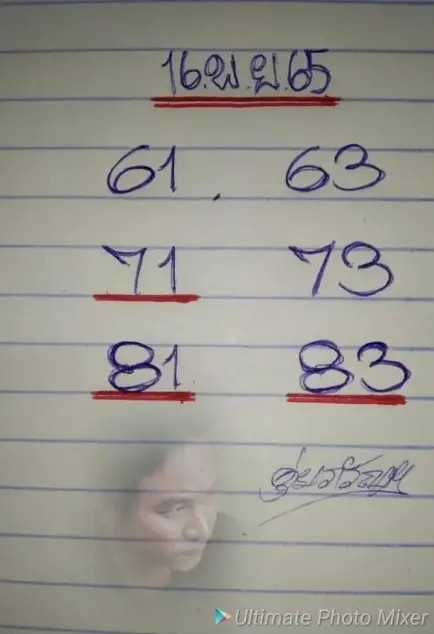 16.พ.ย.65
61 . 63
71 73
81 83
Ultimate Photo Mixer